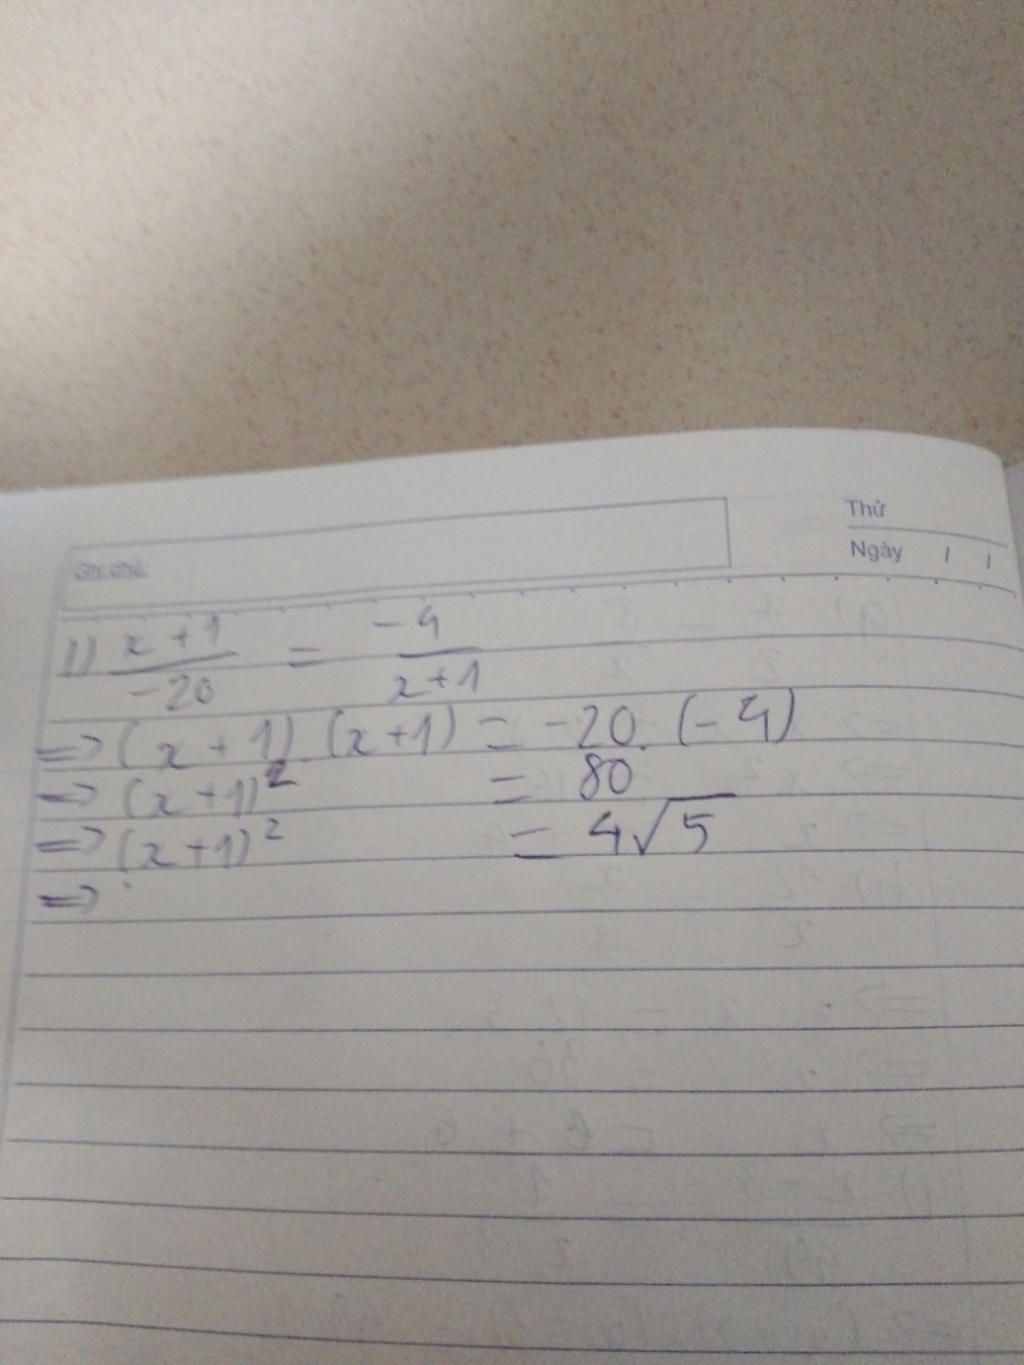 Ghi chú:
Thứ
Ngày / /
1) x + 1 / -20 = -4 / x+1
=> (x + 1) . (x+1) = -20 . (-4)
=> (x+1)² = 80
=> (x+1)² = 4√5
=>